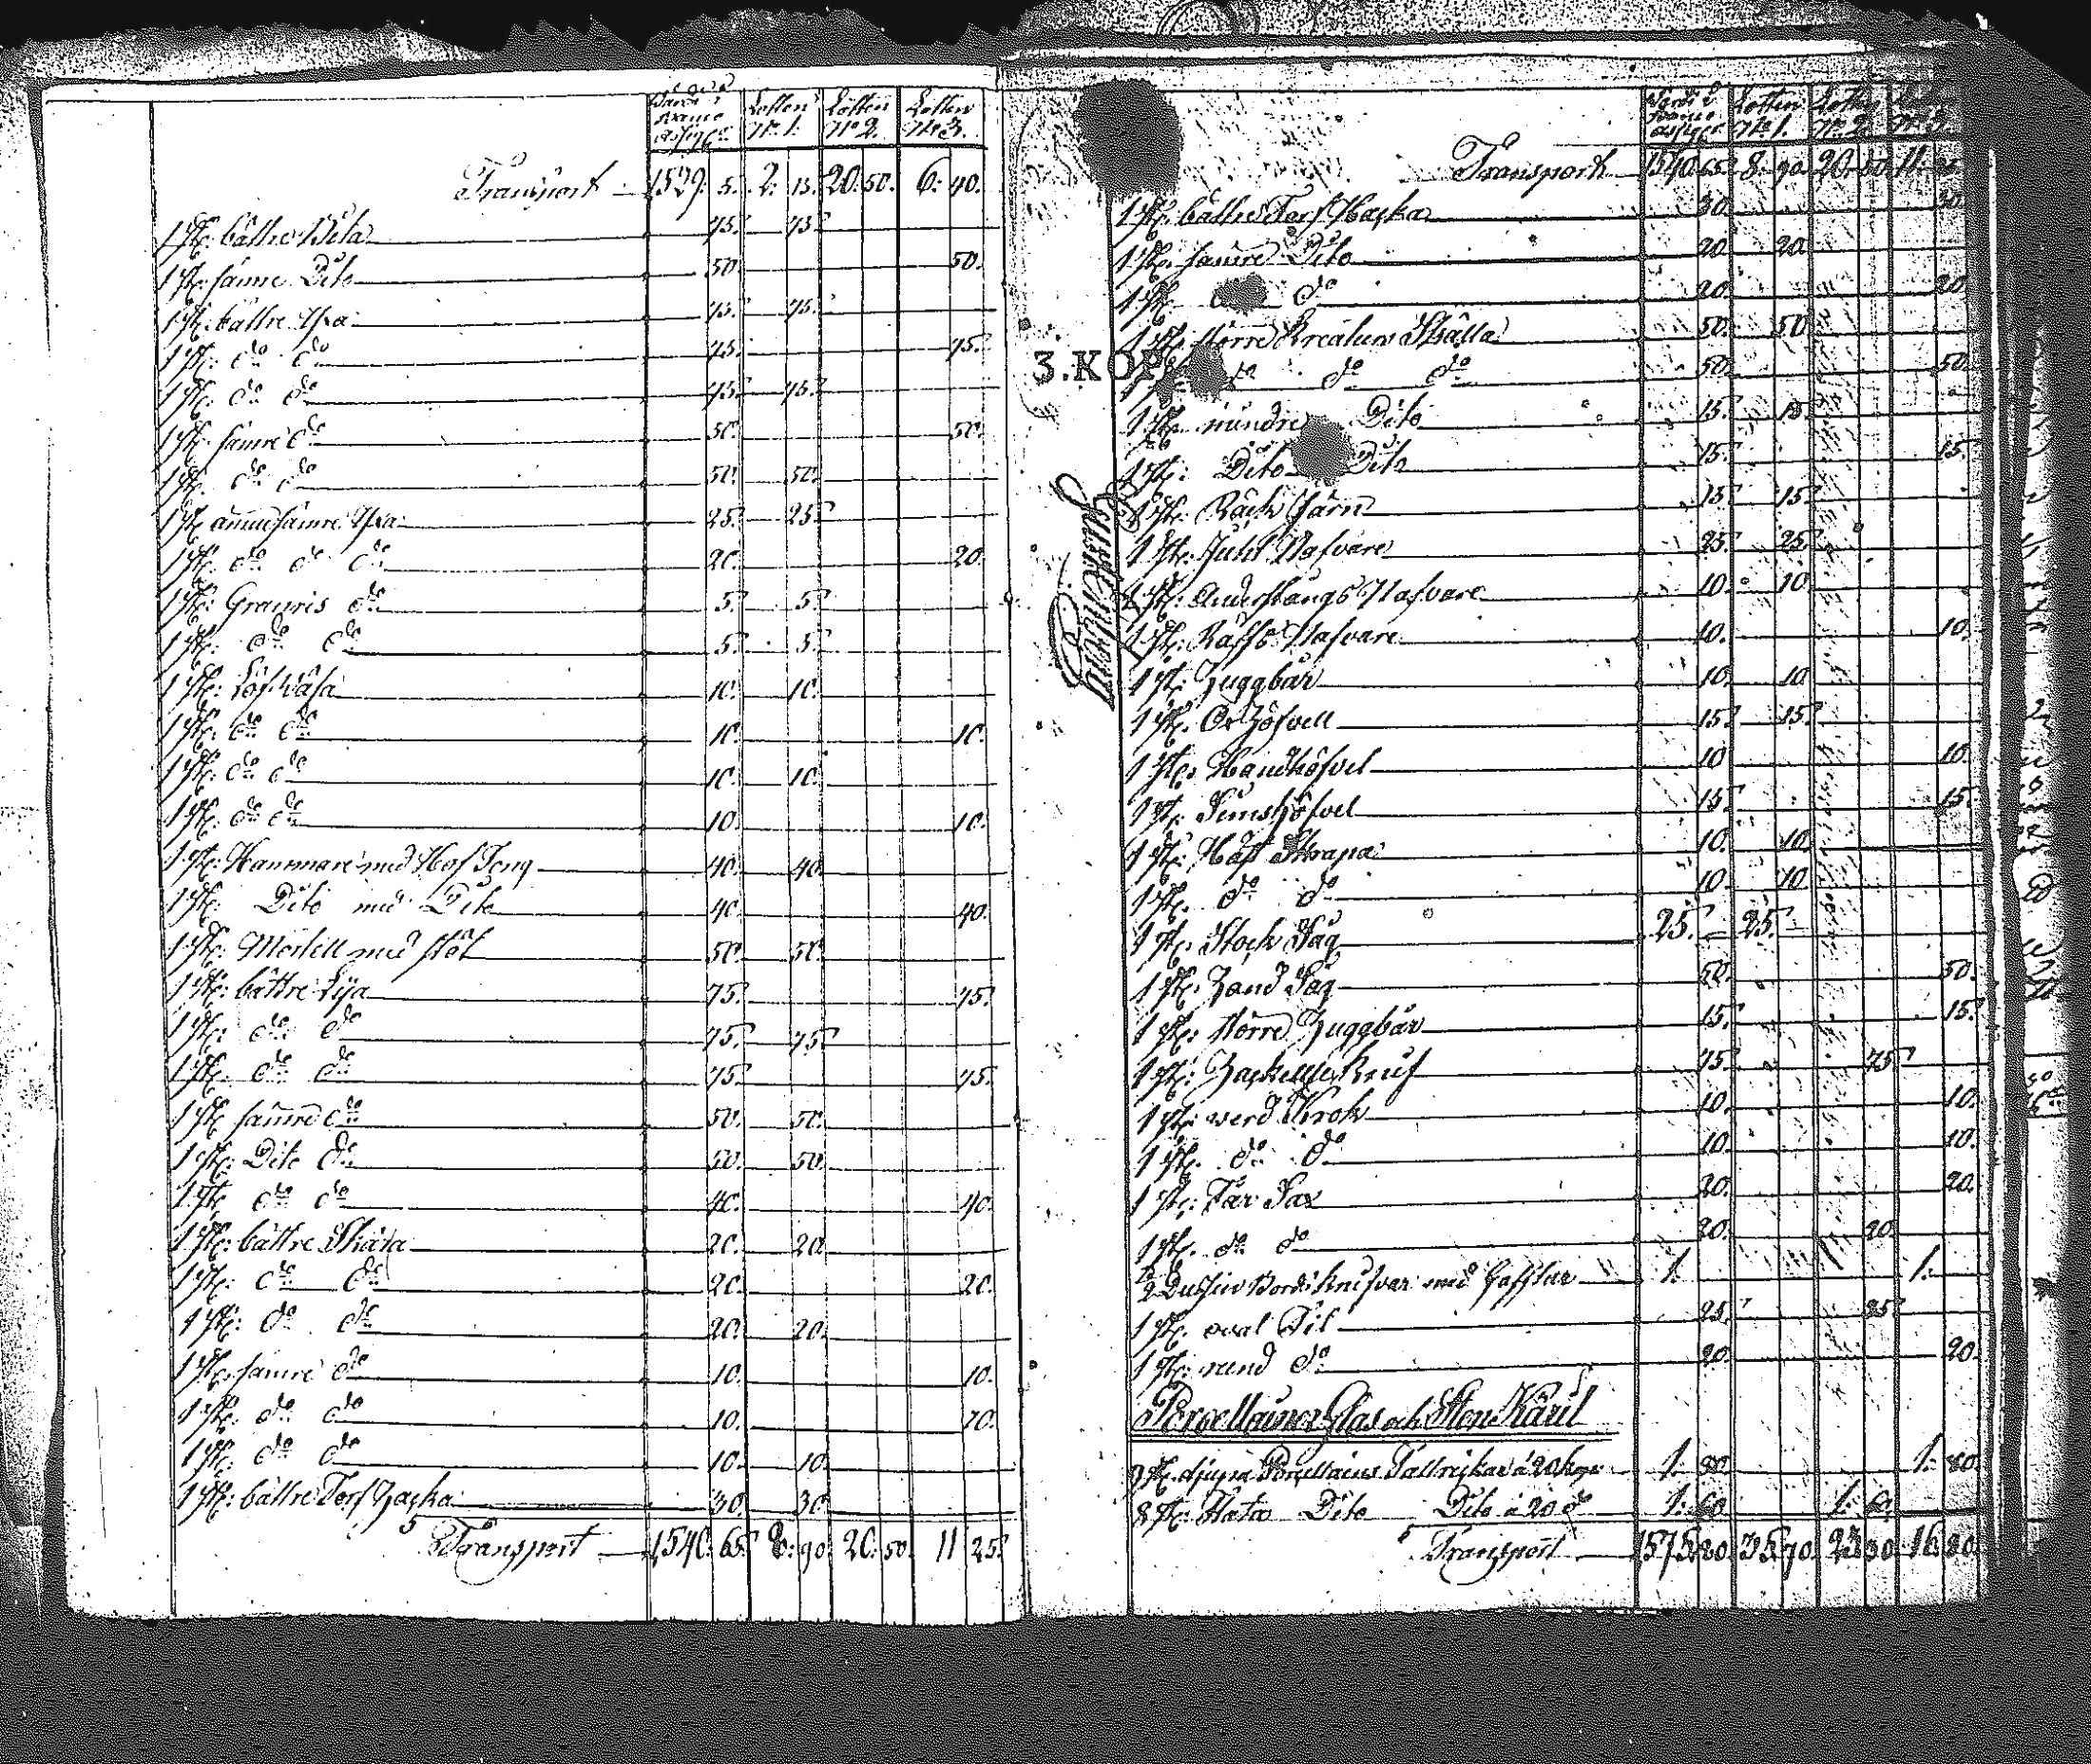 Lotten Lotten Lotten
No 1. No 2. No 3.
Transport 1529. 5. 2. 15. 20. 50. 6. 40.
1 St: bättre Bila 75. 75.
1 St: sämre Dito 50. 50.
1 St: bättre Yxa 75. 75.
1 St: do do 75. 75.
1 St: do do 75. 75.
1 St: sämre do 50. 50.
1 St: do do 50. 50.
1 St: ännu sämre Yxa 25. 25.
1 St: do do do 20. 20.
1 St: Granris do 5. 5.
1 St: do do 5. 5.
1 St: 10. 10.
1 St: do do 10. 10.
1 St: do do 10. 10.
1 St: do do 10. 10.
1 St: Hammare med Hof Teng 40. 40.
1 St: Dito med Dito 40. 40.
1 St: Mortell med stöt 50. 50.
1 St: bättre Lija 75. 75.
1 St: do do 75. 75.
1 St: do do 75. 75.
1 St: sämre do 50. 50.
1 St: Dito do 50. 50.
1 St: do do 40. 40.
1 St: bättre Skära 20. 20.
1 St: do do 20. 20.
1 St: do do 20. 20.
1 St: sämre do 10. 10.
1 St: do do 10. 10.
1 St: do do 10. 10.
1 St: bättre Torf Hacka 30. 30.
Transport 1540. 65. 8. 90. 20. 50. 11 25.
3.KOP
Lotten Lotten
No 1. No 2. No 3.
Transport 1540 65. 8. 90. 20. 50. 11. 25
1 St: bättre Torf Hacka 30. 30.
1 St: sämre Dito 20. 20.
1 St: do 20. 20.
1 St: större Kreaturs Skälla 50. 50.
do do 50. 50.
1 St: mindre Dito 15. 15.
1 St: Dito Dito 15. 15.
1 St: 15. 15.
1 St: Juhl Nafvare 25. 25.
1 St: Nafvare 10. 10.
1 St: Räfs Nafvare 10. 10.
1 St: Huggbär 10. 10.
1 St: Ox Höfvell 15. 15.
1 St: Handhöfvel 10. 10.
1 St: Simshöfvel 15. 15.
1 St: Häst Skrapa 10. 10.
1 St: do do 10. 10.
1 St: Stock Såg 25. 25.
1 St: Hand Såg 50. 50.
1 St: större Huggbär 15. 15.
1 St: Hackelse Knif 75. 75.
1 St: Krok 10. 10.
1 St: do do 10. 10.
1 St: Får Sax 20. 20.
1 St: do do 20. 20.
1/2 Dussin Bords Knifvar med Gafflar 1. 1.
1 St: oval Fil 25. 25.
1 St: rund do 20. 20.
Porcellainer Glas och Sten Käril
9 St: djupa Porcellains Tallrickar à 20 kop: 1. 80. 1. 80.
8 St: flata Dito Dito à 20 do 1. 60. 1. 60.
Transport 1575. 20. 35. 70. 23. 30. 16. 20.